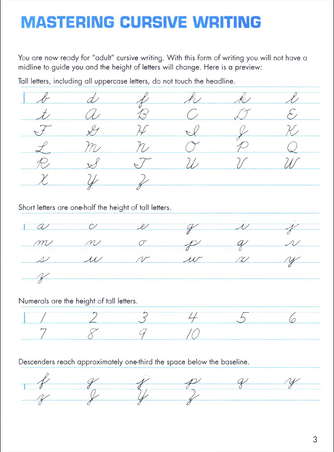 MASTERING CURSIVE WRITING
You are now ready for "adult" cursive writing. With this form of writing you will not have a
midline to guide you and the height of letters will change. Here is a preview:
Tall letters, including all uppercase letters, do not touch the headline.
b d f h k l
t A B C D E
F G H I J K
L M N O P Q
R S T U V W
X Y Z
Short letters are one-half the height of tall letters.
a c e g i j
m n o p q r
s u v w x y
z
Numerals are the height of tall letters.
1 2 3 4 5 6
7 8 9 10
Descenders reach approximately one-third the space below the baseline.
f g j p q y
z J Y Z
3